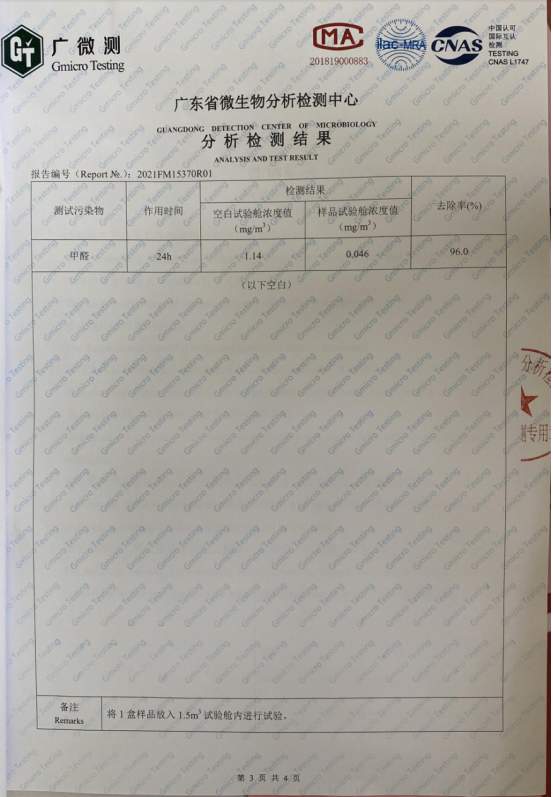 GT
广微测
Gmicro Testing
MA
201819000883
ilac-MRA
CNAS
中国认可
国际互认
检测
TESTING
CNAS L1747
广东省微生物分析检测中心
GUANGDONG DETECTION CENTER OF MICROBIOLOGY
分析检测结果
ANALYSIS AND TEST RESULT
报告编号（Report №.）：2021FM15370R01
测试污染物
作用时间
检测结果
空白试验舱浓度值
（mg/m³）
样品试验舱浓度值
（mg/m³）
去除率(%)
甲醛
24h
1.14
0.046
96.0
（以下空白）
分析
专用
备注
Remarks
将 1 盒样品放入 1.5m³ 试验舱内进行试验。
第 3 页 共 4 页